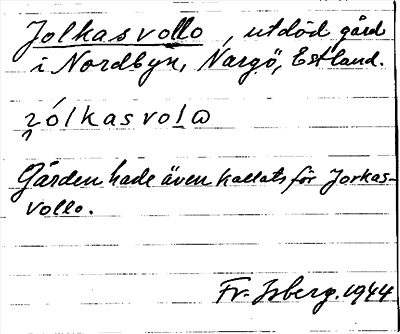 Jolkasvollo, utdöd gård
i Nordbyn, Nargö, Estland.
jólkasvola
Gården hade även kallats för Jorkas-
vollo.
Fr. Isberg. 1944